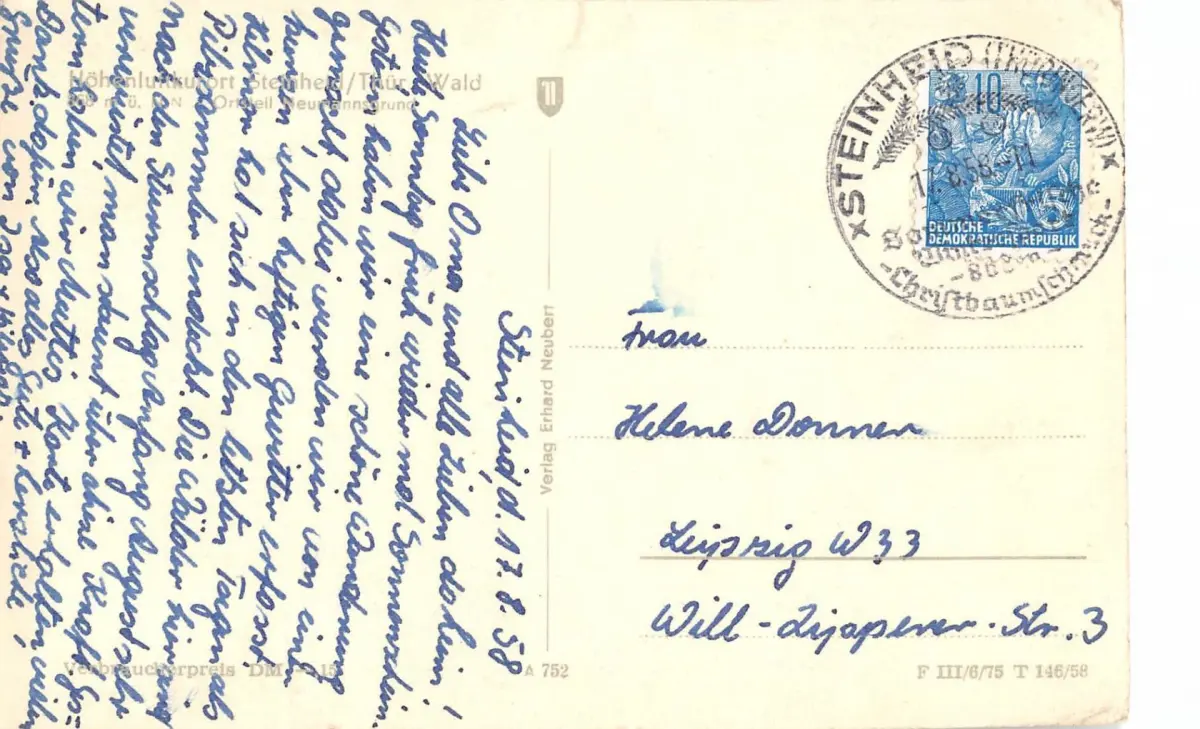 Höhenluftkurort Steinheid/Thür. Wald
Ortsteil Neumannsgrund
Steinheid, d. 17.8.58
Liebe Oma und alle Lieben daheim!
Heute, Sonntag früh wieder mal Sonnenschein.
Gestern haben wir eine schöne Wanderung
gemacht, dabei wurden wir von einem
kurzen, aber heftigen Gewitter erfasst.
hat sich in den letzten Tagen als
Pilzsammler entdeckt. Die Wälder hier sind
nach dem Sturmschlag Anfang August sehr
man staunt über ohne
haben wir Muttis Karte erhalten, vielen
Dank dafür. Alles Gute + herzliche
Grüße von
Verlag Erhard Neubert
Verbraucherpreis DM -,15
A 752
STEINHEID (THÜRINGERW)
17.8.58.-11
-Christbaumschmuck-
10
DEUTSCHE
DEMOKRATISCHE REPUBLIK
Frau
Helene Donner
Leipzig W33
Will-Zipperer-Str. 3
F III/6/75 T 146/58